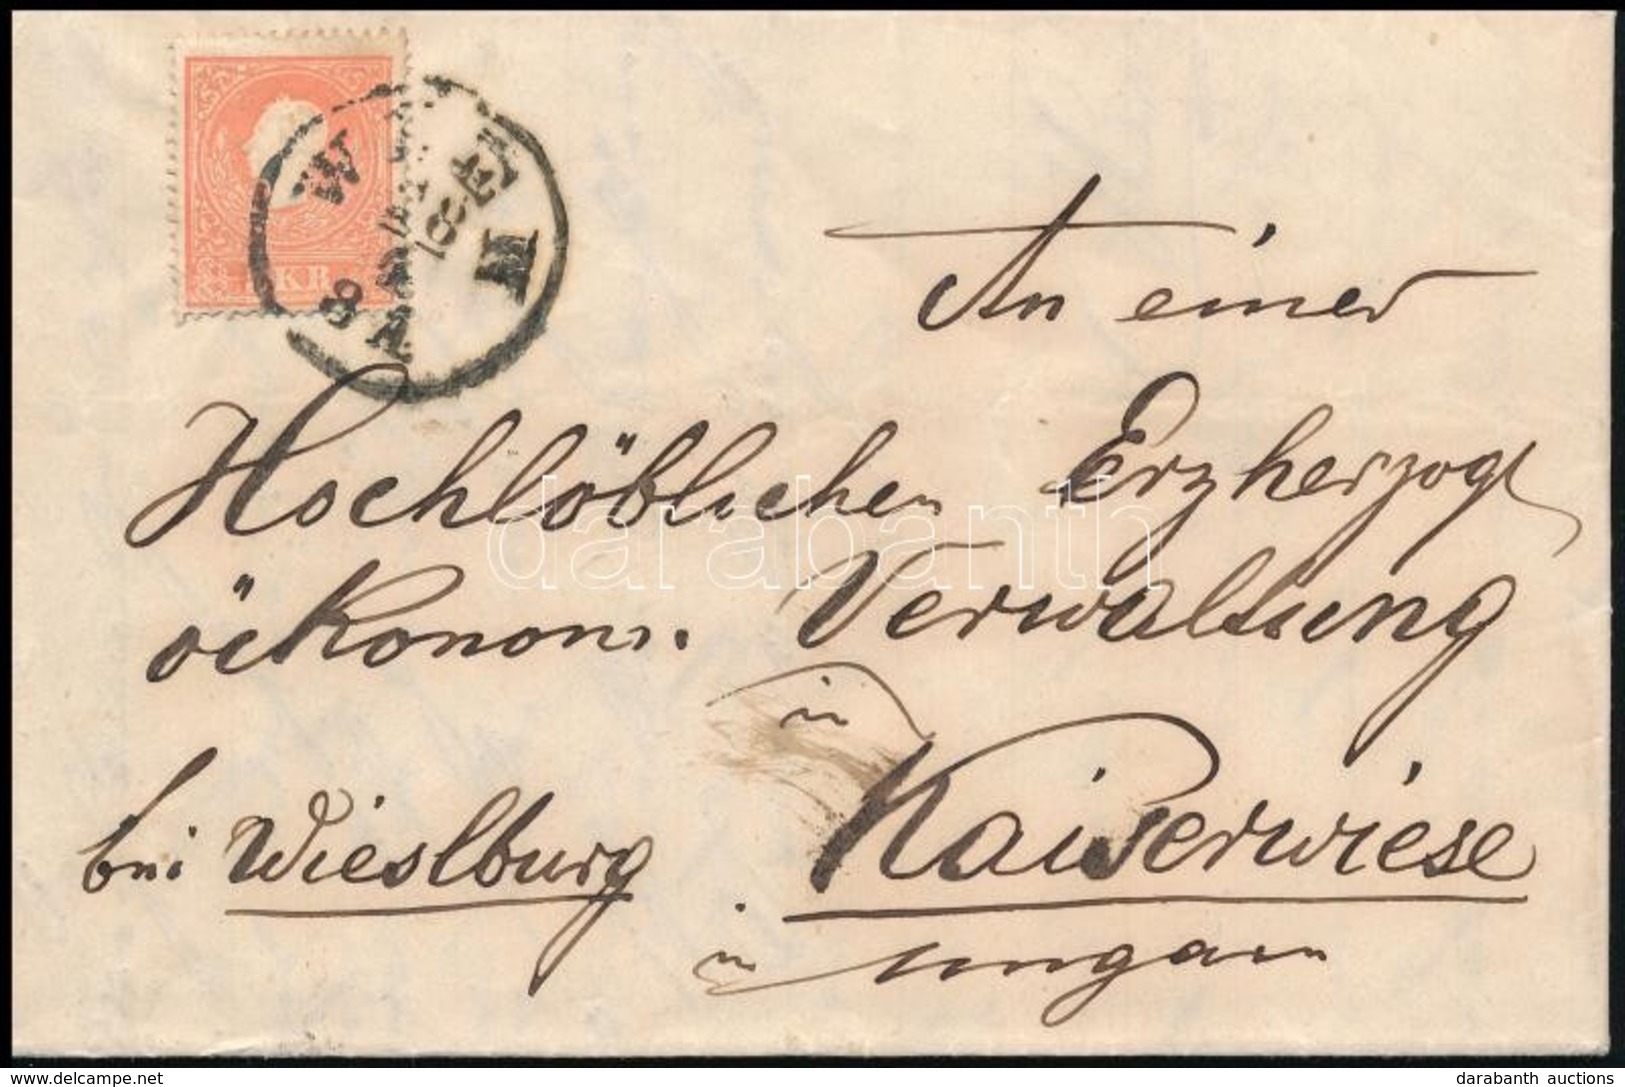 KR
WIEN
An einer
Hochlöblichen Erzherzogl
ökonom. Verwaltung
in
bei Wieslburg Kaiserwiese
in Ungarn
darabanth
delcampe.net
darabanth auctions